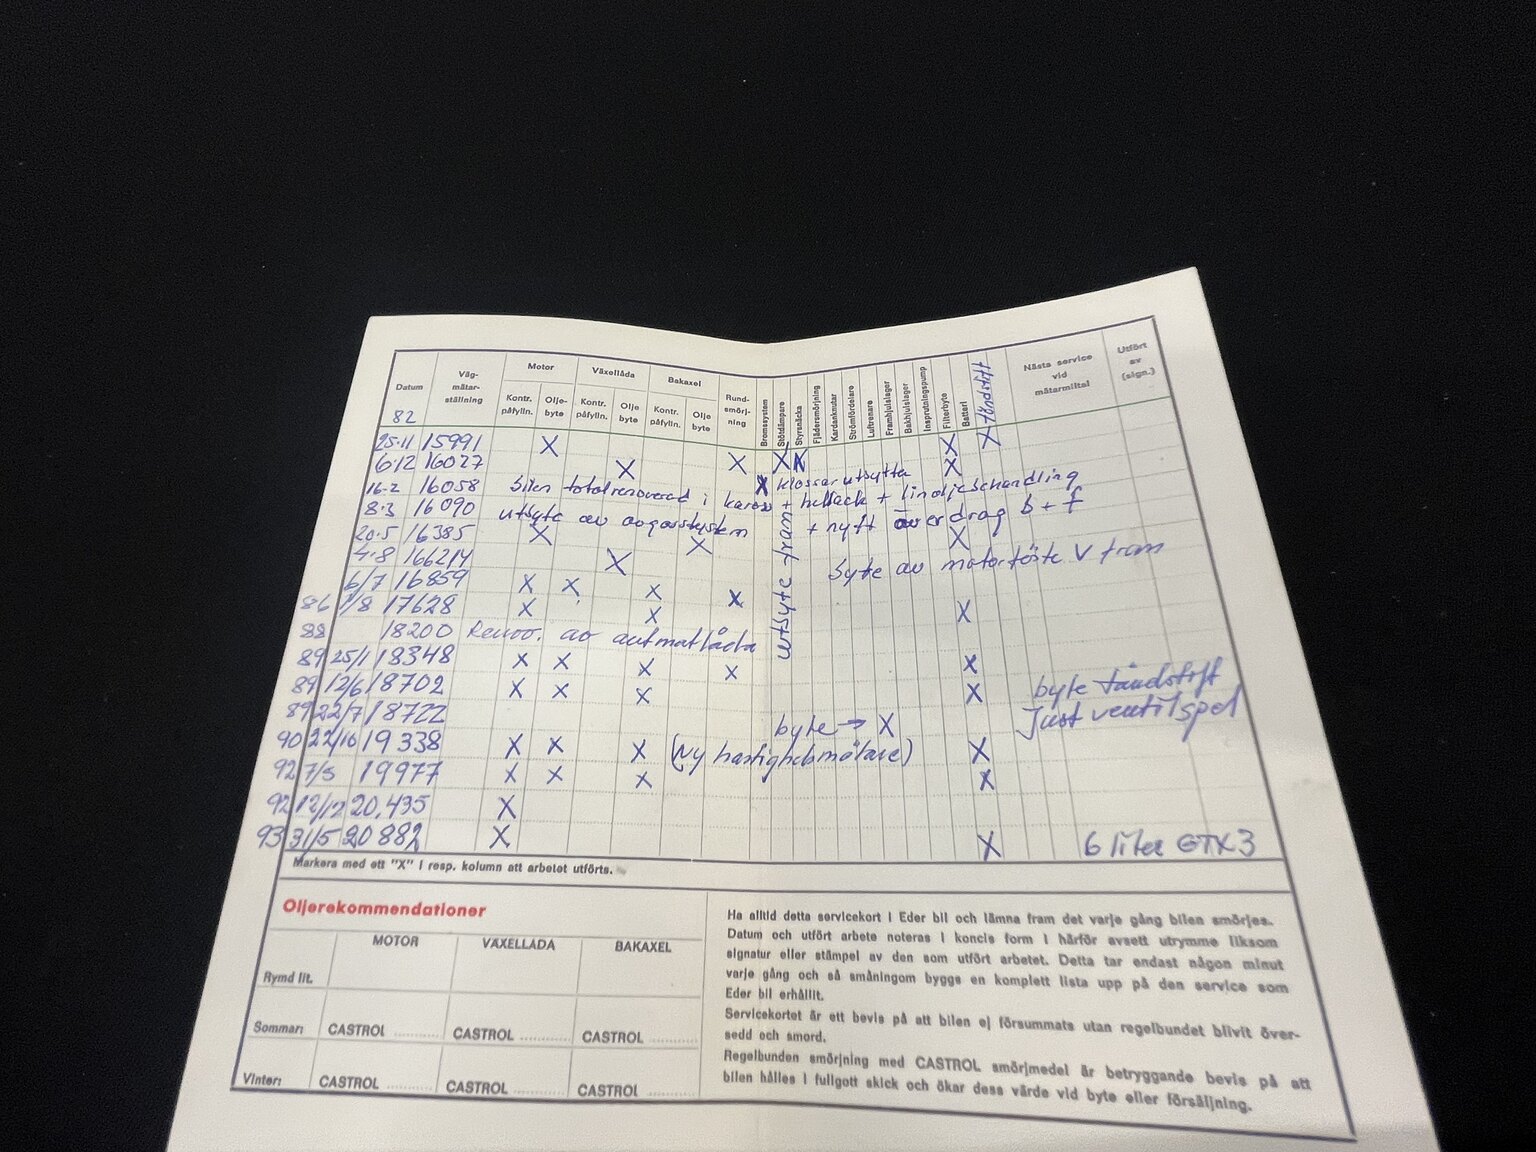 Datum Väg-mätar-ställning Motor Växellåda Bakaxel Rund-smörj-ning Bromssystem Stötdämpare Styrsnäcka Fjädersmörjning Kardanknutar Strömfördelare Luftrenare Framhjulslager Bakhjulslager Insprutningspump Filterbyte Batteri Tändstift Nästa service vid mätarmiltal Utfört av (sign.)
Kontr. påfylln. Olje-byte Kontr. påfylln. Olje byte Kontr. påfylln. Olje byte
82
25.11 15991 X X X
6.12 16027 X X X X X
X klossar utbytta
16.2 16058 Bilen totalrenoverad i kaross + hellack + linoljebehandling
8.3 16090 utbyte av avgassystem + nytt överdrag b + f
20.5 16385 X X X
4.8 166214 X byte av motorfäste V fram
utbyte fram
6/7 16859 X X X X
86 1/8 17628 X X X
88 18200 Renov. av automatlåda
89 25/1 18348 X X X X X
89 12/6 18702 X X X X byte tändstift
89 22/7 18722 byte → X Just ventilspel
90 22/10 19338 X X X (Ny hastighetsmätare) X
92 7/5 19977 X X X X
92 12/12 20.435 X
93 31/5 20882 X X 6 liter GTX3
Markera med ett "X" i resp. kolumn att arbetet utförts.
Oljerekommendationer
MOTOR VÄXELLÅDA BAKAXEL
Rymd lit.
Sommar: CASTROL CASTROL CASTROL
Vinter: CASTROL CASTROL CASTROL
Ha alltid detta servicekort i Eder bil och lämna fram det varje gång bilen smörjes.
Datum och utfört arbete noteras i koncis form i härför avsett utrymme liksom
signatur eller stämpel av den som utfört arbetet. Detta tar endast någon minut
varje gång och så småningom byggs en komplett lista upp på den service som
Eder bil erhållit.
Servicekortet är ett bevis på att bilen ej försummats utan regelbundet blivit över-
sedd och smord.
Regelbunden smörjning med CASTROL smörjmedel är betryggande bevis på att
bilen hålles i fullgott skick och ökar dess värde vid byte eller försäljning.